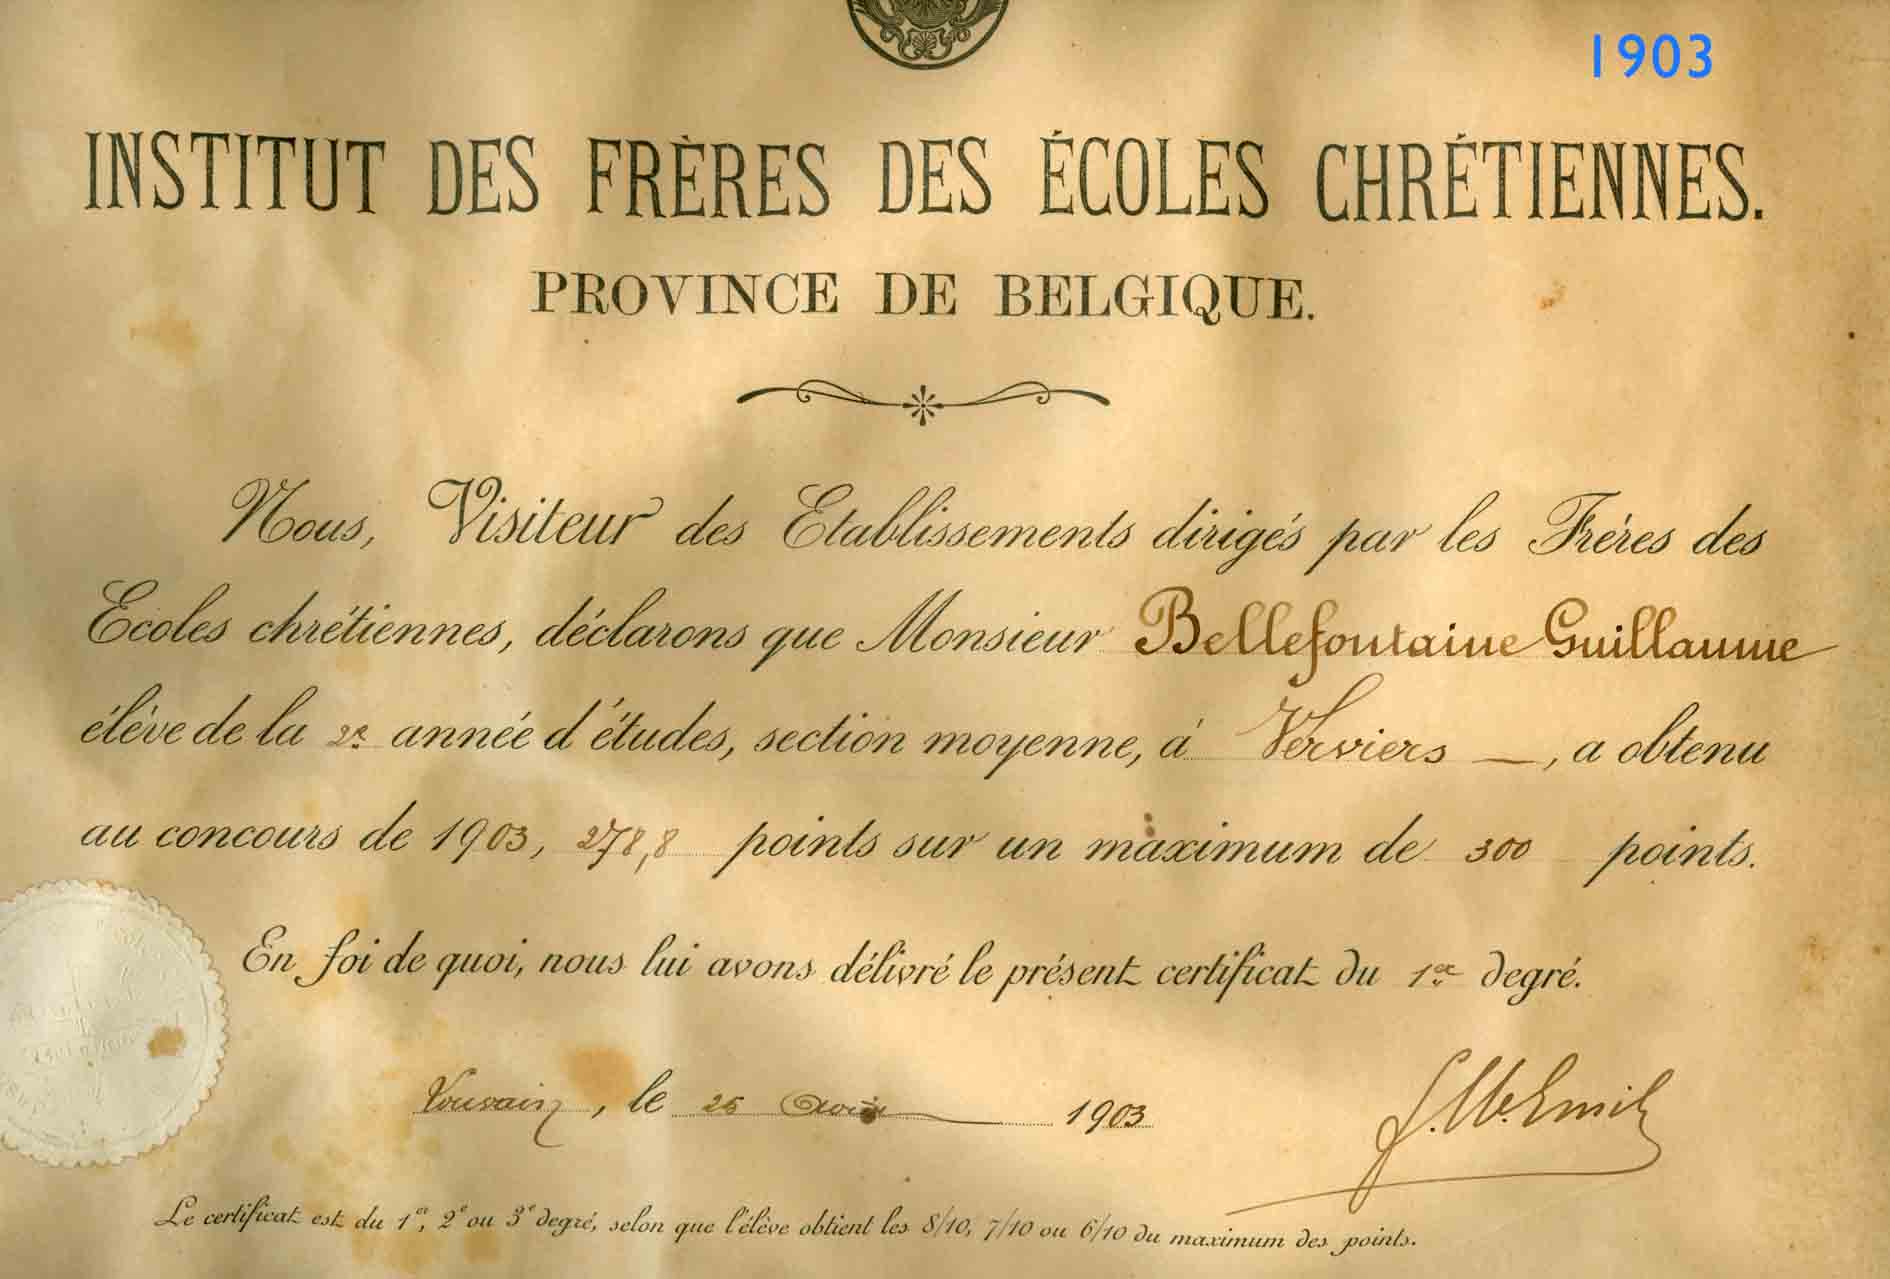 1903
INSTITUT DES FRÈRES DES ÉCOLES CHRÉTIENNES.
PROVINCE DE BELGIQUE.
Nous, Visiteur des Etablissements dirigés par les Frères des
Ecoles chrétiennes, déclarons que Monsieur Bellefontaine Guillaume
élève de la 2e année d'études, section moyenne, à Verviers —, a obtenu
au concours de 1903, 278,8 points sur un maximum de 300 points.
En foi de quoi, nous lui avons délivré le présent certificat du 1er degré.
Louvain, le 25 Août 1903
Le certificat est du 1er, 2e ou 3e degré, selon que l'élève obtient les 8/10, 7/10 ou 6/10 du maximum des points.